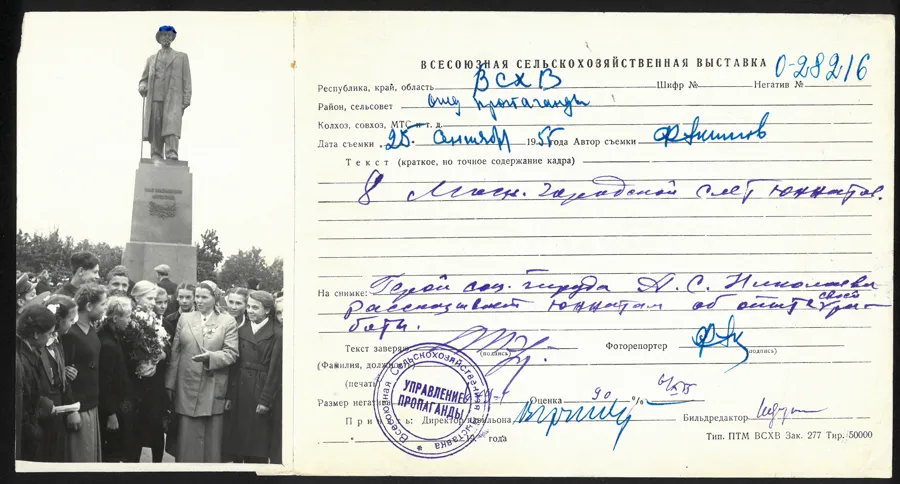 ВСЕСОЮЗНАЯ СЕЛЬСКОХОЗЯЙСТВЕННАЯ ВЫСТАВКА
Республика, край, область ВСХВ Шифр № Негатив № 0-28216
Район, сельсовет отд пропаганды
Колхоз, совхоз, МТС и т. д.
Дата съемки 25 сентября 1955 года Автор съемки Ф Акимов
Текст (краткое, но точное содержание кадра)
8 Моск. городской слет юннатов.
На снимке: Герой соц. труда А. С. Николаева
рассказывает юннатам об опыте своей ра-
боты.
Текст заверяю (подпись) Фоторепортер (подпись)
(Фамилия, должность)
(печать)
Размер негатива Оценка 90 %
Директор павильона Бильдредактор
19 года Тип. ПТМ ВСХВ Зак. 277 Тир. 50000
Всесоюзная Сельскохозяйственная Выставка
УПРАВЛЕНИЕ
ПРОПАГАНДЫ